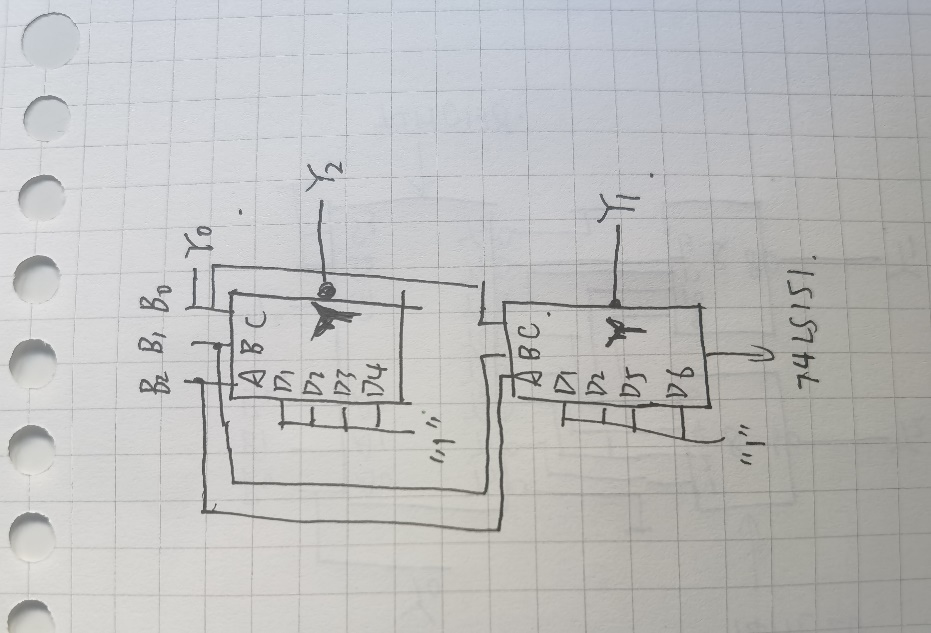 B2 B1 B0 Y0
A B C
Y
D1 D2 D3 D4
"1"
Y2
A B C
Y
D1 D2 D5 D6
"1"
Y1
74LS151.